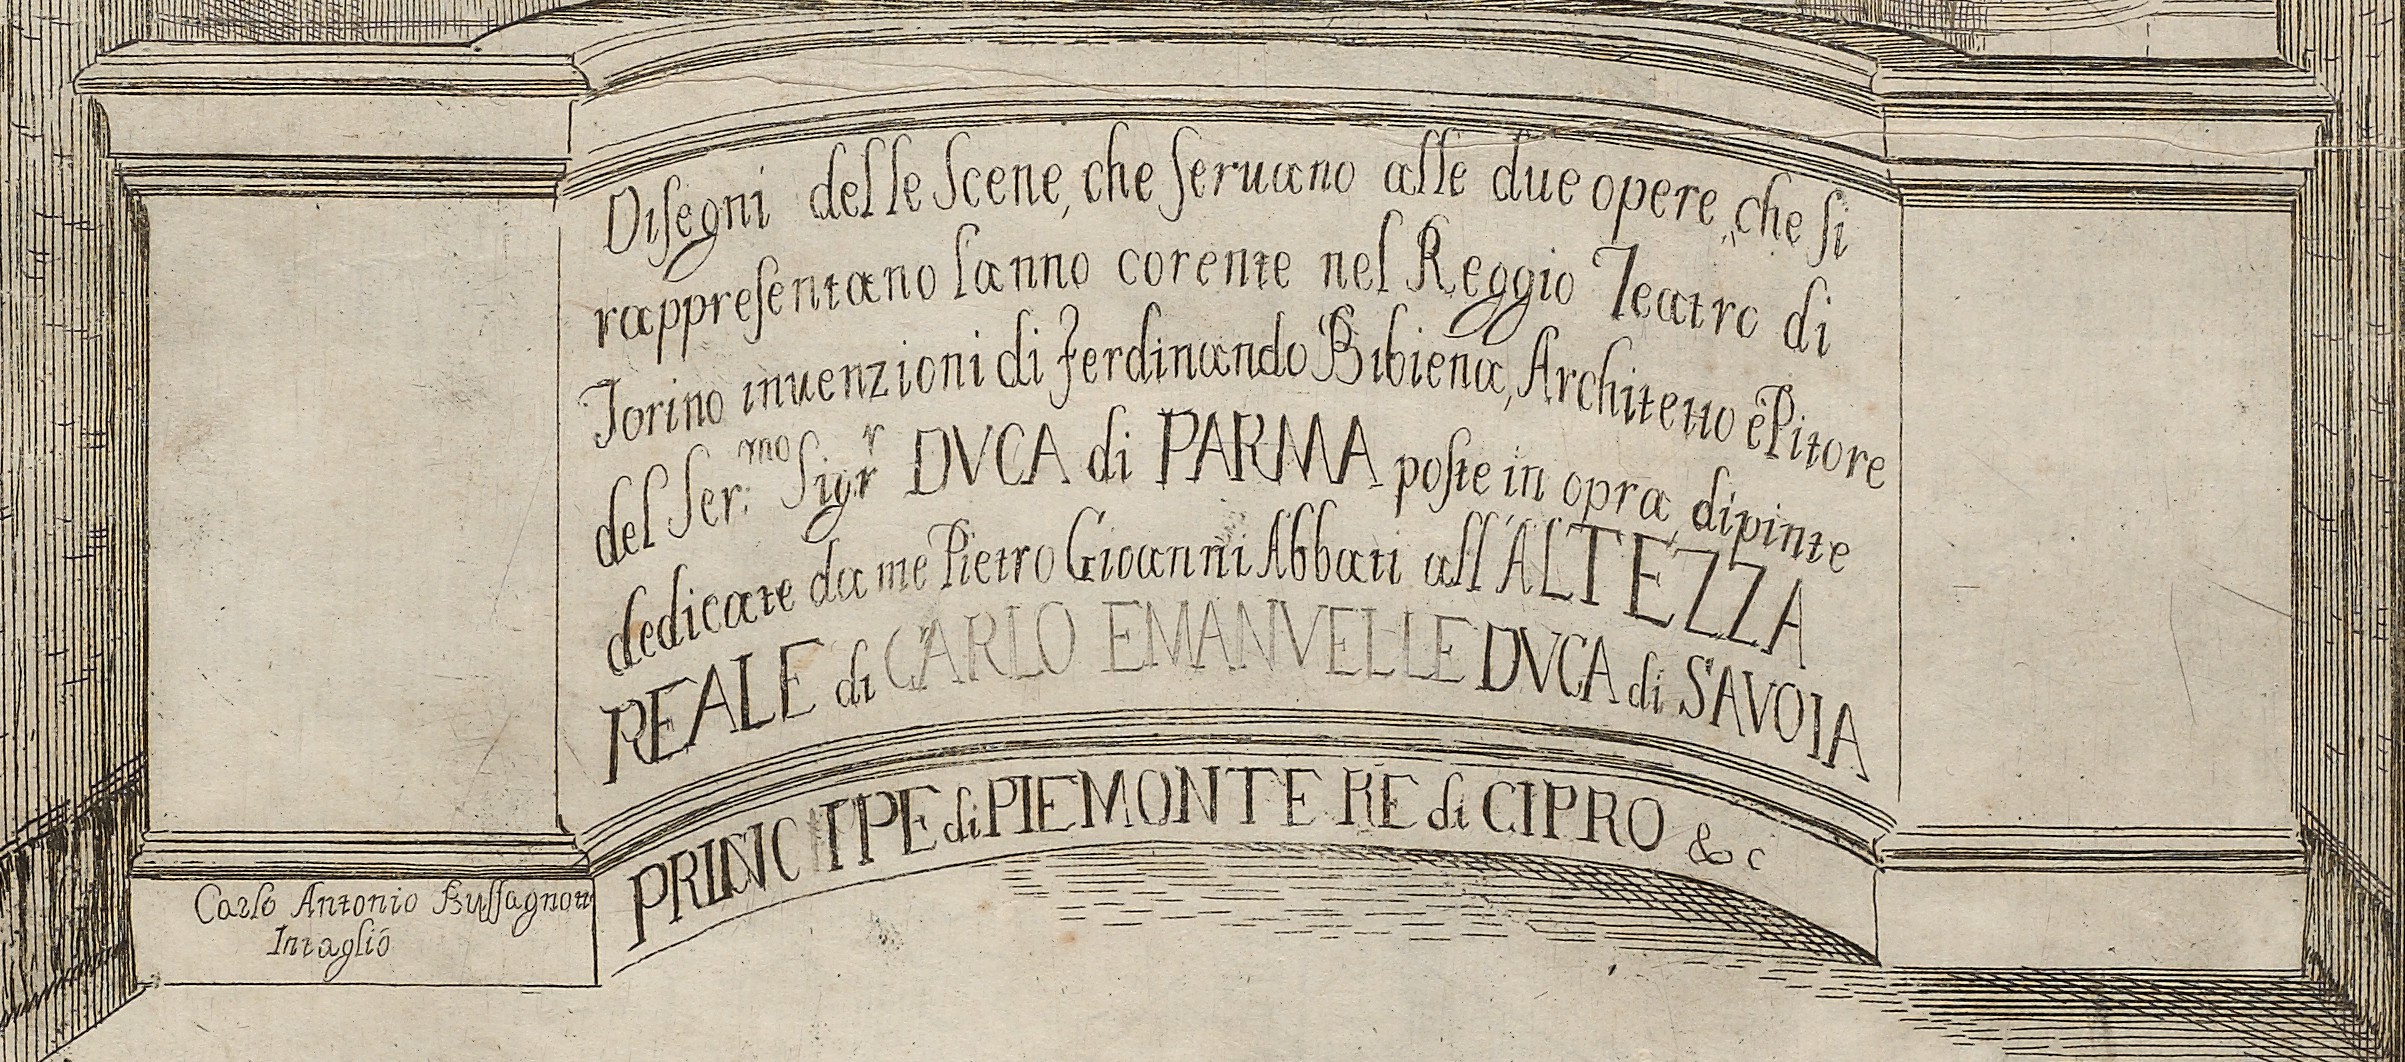 Disegni delle Scene, che seruano alle due opere, che si
rappresentano l'anno corente nel Reggio Teatro di
Torino inuenzioni di Ferdinando Bibiena, Architetto è Pitore
del Ser:mo Sigr.r DVCA di PARMA poste in opra, dipinte
dedicate da me Pietro Giovanni Abbati all'ALTEZZA
REALE di CARLO EMANVELLE DVCA di SAVOIA
PRINCIPE di PIEMONTE RE di CIPRO &c
Carlo Antonio Buffagnotti
Intagliò